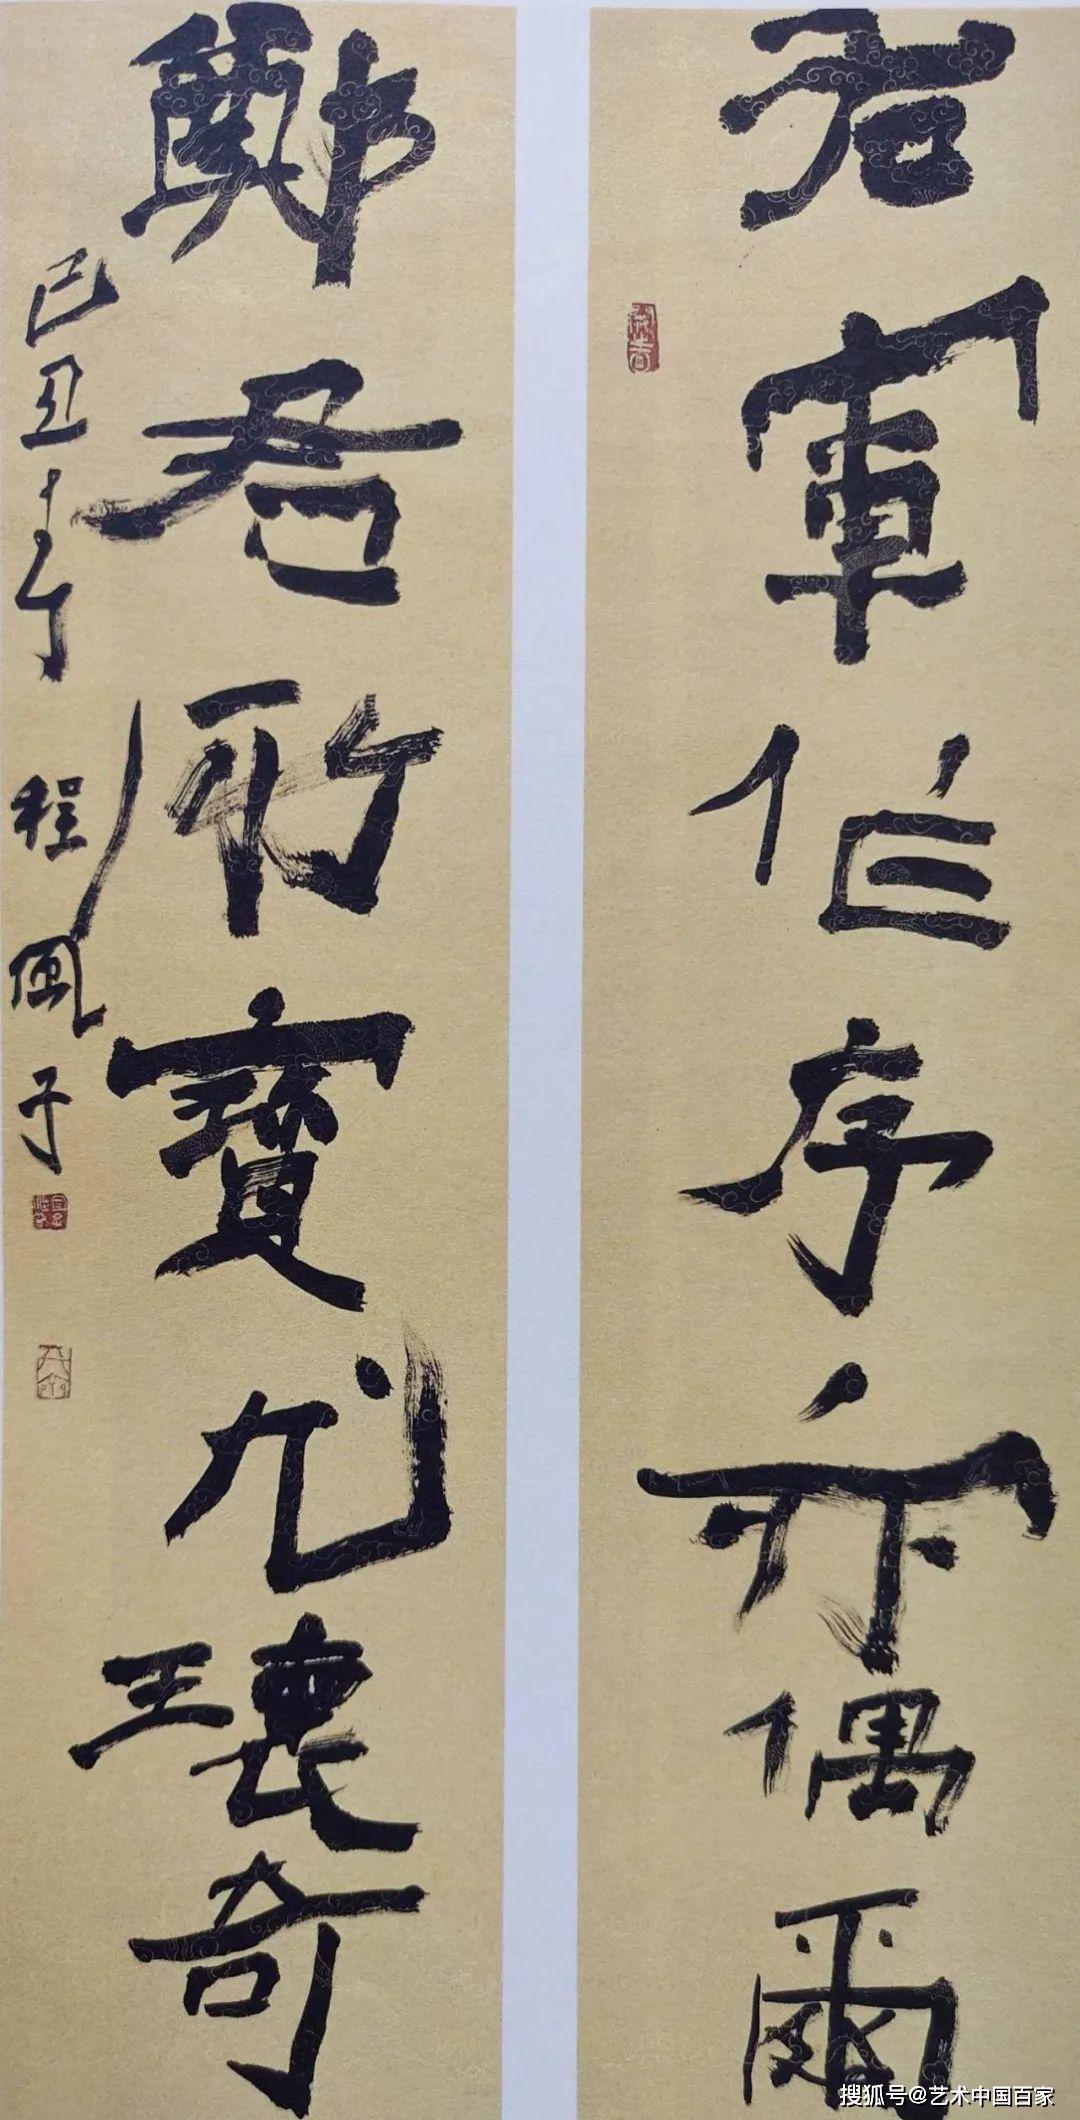 右軍作序亦偶爾
鄭君所寶尤瓌奇
己丑春 程風子
搜狐号@艺术中国百家